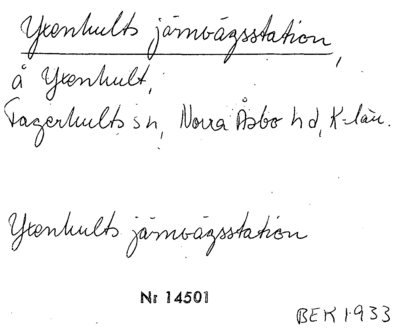 Yxenhults järnvägsstation,
å Yxenhult,
Fagerhults sn, Norra Åsbo hd, K-län.
Yxenhults järnvägsstation
Nr 14501
BEK 1933